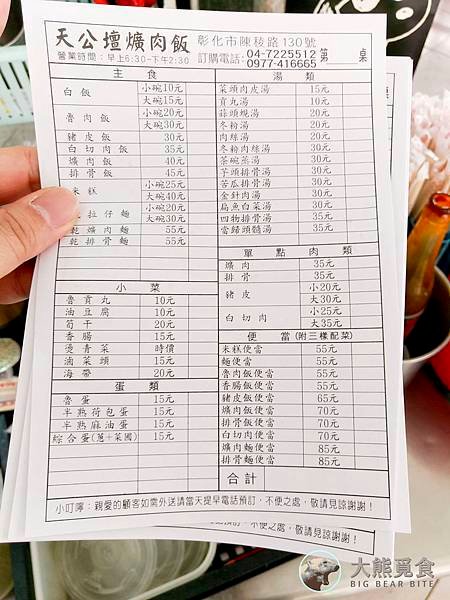 天公壇爌肉飯 彰化市陳稜路130號
營業時間：早上6:30-下午2:30 訂購電話：04-7225512 0977-416665 第 桌
主食
白飯 小碗10元
大碗15元
魯肉飯 小碗20元
大碗30元
豬皮飯 30元
白切肉飯 35元
爌肉飯 40元
排骨飯 45元
米糕 小碗25元
大碗40元
拉仔麵 小碗20元
大碗30元
乾爌肉麵 55元
乾排骨麵 55元
小菜
魯貢丸 10元
油豆腐 10元
筍干 20元
香腸 15元
燙青菜 時價
滷菜頭 15元
海帶 20元
蛋類
魯蛋 15元
半熟荷包蛋 15元
半熟麻油蛋 15元
綜合蛋(蔥+菜圃) 15元
湯類
菜頭肉皮湯 15元
貢丸湯 10元
蒜頭蜆湯 20元
冬粉湯 20元
肉絲湯 20元
冬粉肉絲湯 30元
茶碗蒸湯 30元
芋頭排骨湯 30元
苦瓜排骨湯 30元
金針肉湯 30元
扁魚白菜湯 30元
四物排骨湯 35元
當歸頭髓湯 35元
單點肉類
爌肉 35元
排骨 35元
豬皮 小20元
大30元
白切肉 小25元
大35元
便當(附三樣配菜)
米糕便當 55元
麵便當 55元
魯肉飯便當 55元
香腸飯便當 55元
豬皮飯便當 65元
爌肉飯便當 70元
排骨飯便當 70元
白切肉便當 70元
爌肉麵便當 85元
排骨麵便當 85元
合計
小叮嚀：親愛的顧客如需外送請當天提早電話預訂，不便之處，敬請見諒謝謝！
預訂，不便之處，敬請見諒謝謝！
大熊覓食
BIG BEAR BITE